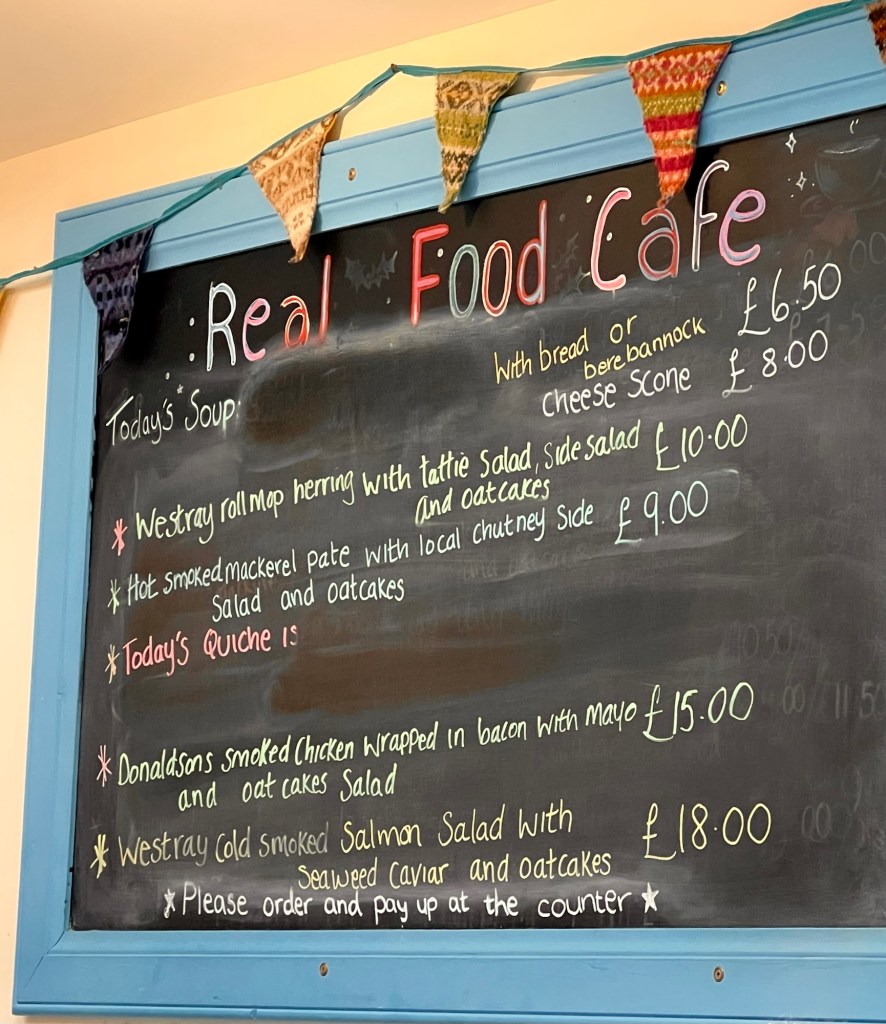 Real Food Cafe
With bread or
berebannock £6.50
Today's Soup:
Cheese Scone £8.00
* Westray rollmop herring with tattie Salad, Side salad £10.00
and oatcakes
* Hot smoked mackerel pate with local chutney Side £9.00
Salad and oatcakes
* Today's Quiche is
* Donaldsons smoked Chicken wrapped in bacon with mayo £15.00
and oat cakes Salad
* Westray Cold smoked Salmon Salad with £18.00
Seaweed Caviar and oatcakes
* Please order and pay up at the counter *